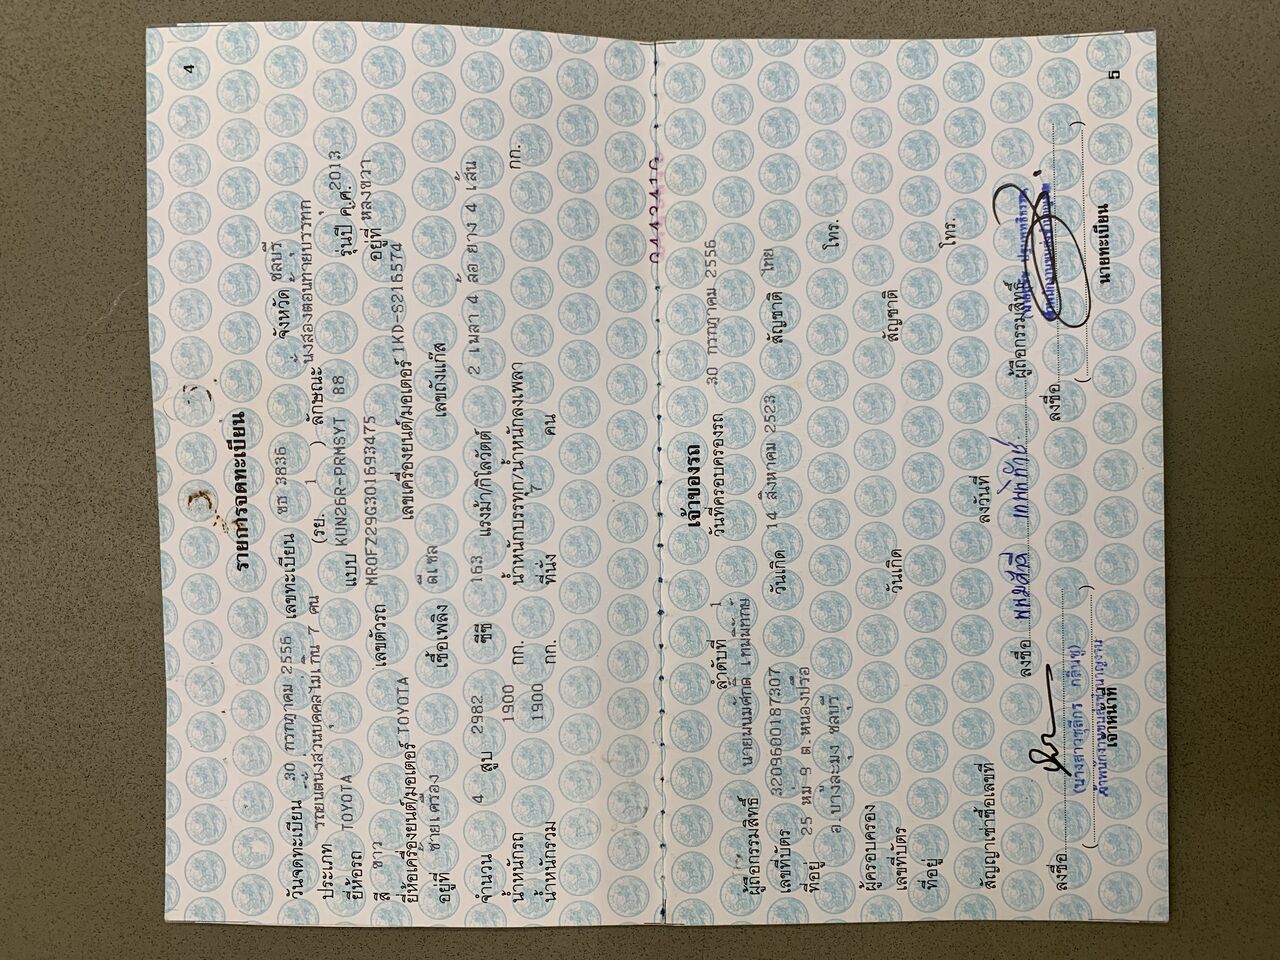 4
รายการจดทะเบียน
วันจดทะเบียน 30 กรกฎาคม 2556 เลขทะเบียน ชธ 3836 จังหวัด ชลบุรี
ประเภท รถยนต์นั่งส่วนบุคคลไม่เกิน 7 คน (รย. 1 ) ลักษณะ นั่งสองตอนท้ายบรรทุก
ยี่ห้อรถ TOYOTA แบบ KUN26R-PRMSYT 88 รุ่นปี ค.ศ. 2013
สี ขาว เลขตัวรถ MR0FZ29G301693475 อยู่ที่ หลังขวา
ยี่ห้อเครื่องยนต์/มอเตอร์ TOYOTA เลขเครื่องยนต์/มอเตอร์ 1KD-S216574
อยู่ที่ ซ้ายเครื่อง เชื้อเพลิง ดีเซล เลขถังแก๊ส
จำนวน 4 สูบ 2982 ซีซี 163 แรงม้า/กิโลวัตต์ 2 เพลา 4 ล้อ ยาง 4 เส้น
น้ำหนักรถ 1900 กก. น้ำหนักบรรทุก/น้ำหนักลงเพลา กก.
น้ำหนักรวม 1900 กก. ที่นั่ง 7 คน
เจ้าของรถ
ลำดับที่ 1 วันที่ครอบครองรถ 30 กรกฎาคม 2556
ผู้ถือกรรมสิทธิ์ นายพนมศักดิ์ เทพพิทักษ์
เลขที่บัตร 3209600187307 วันเกิด 14 สิงหาคม 2523 สัญชาติ ไทย
ที่อยู่ 25 หมู่ 9 ต.หนองปรือ โทร.
อ.บางละมุง ชลบุรี
ผู้ครอบครอง
เลขที่บัตร วันเกิด สัญชาติ
ที่อยู่ โทร.
สัญญาเช่าซื้อเลขที่ ลงวันที่
ลงชื่อ พนมศักดิ์ เทพพิทักษ์ ผู้ถือกรรมสิทธิ์
ลงชื่อ ลงชื่อ
(นางสาวชุลีกร กลิ่นชู)
( ) ( )
เจ้าหน้าที่ นายทะเบียน
5